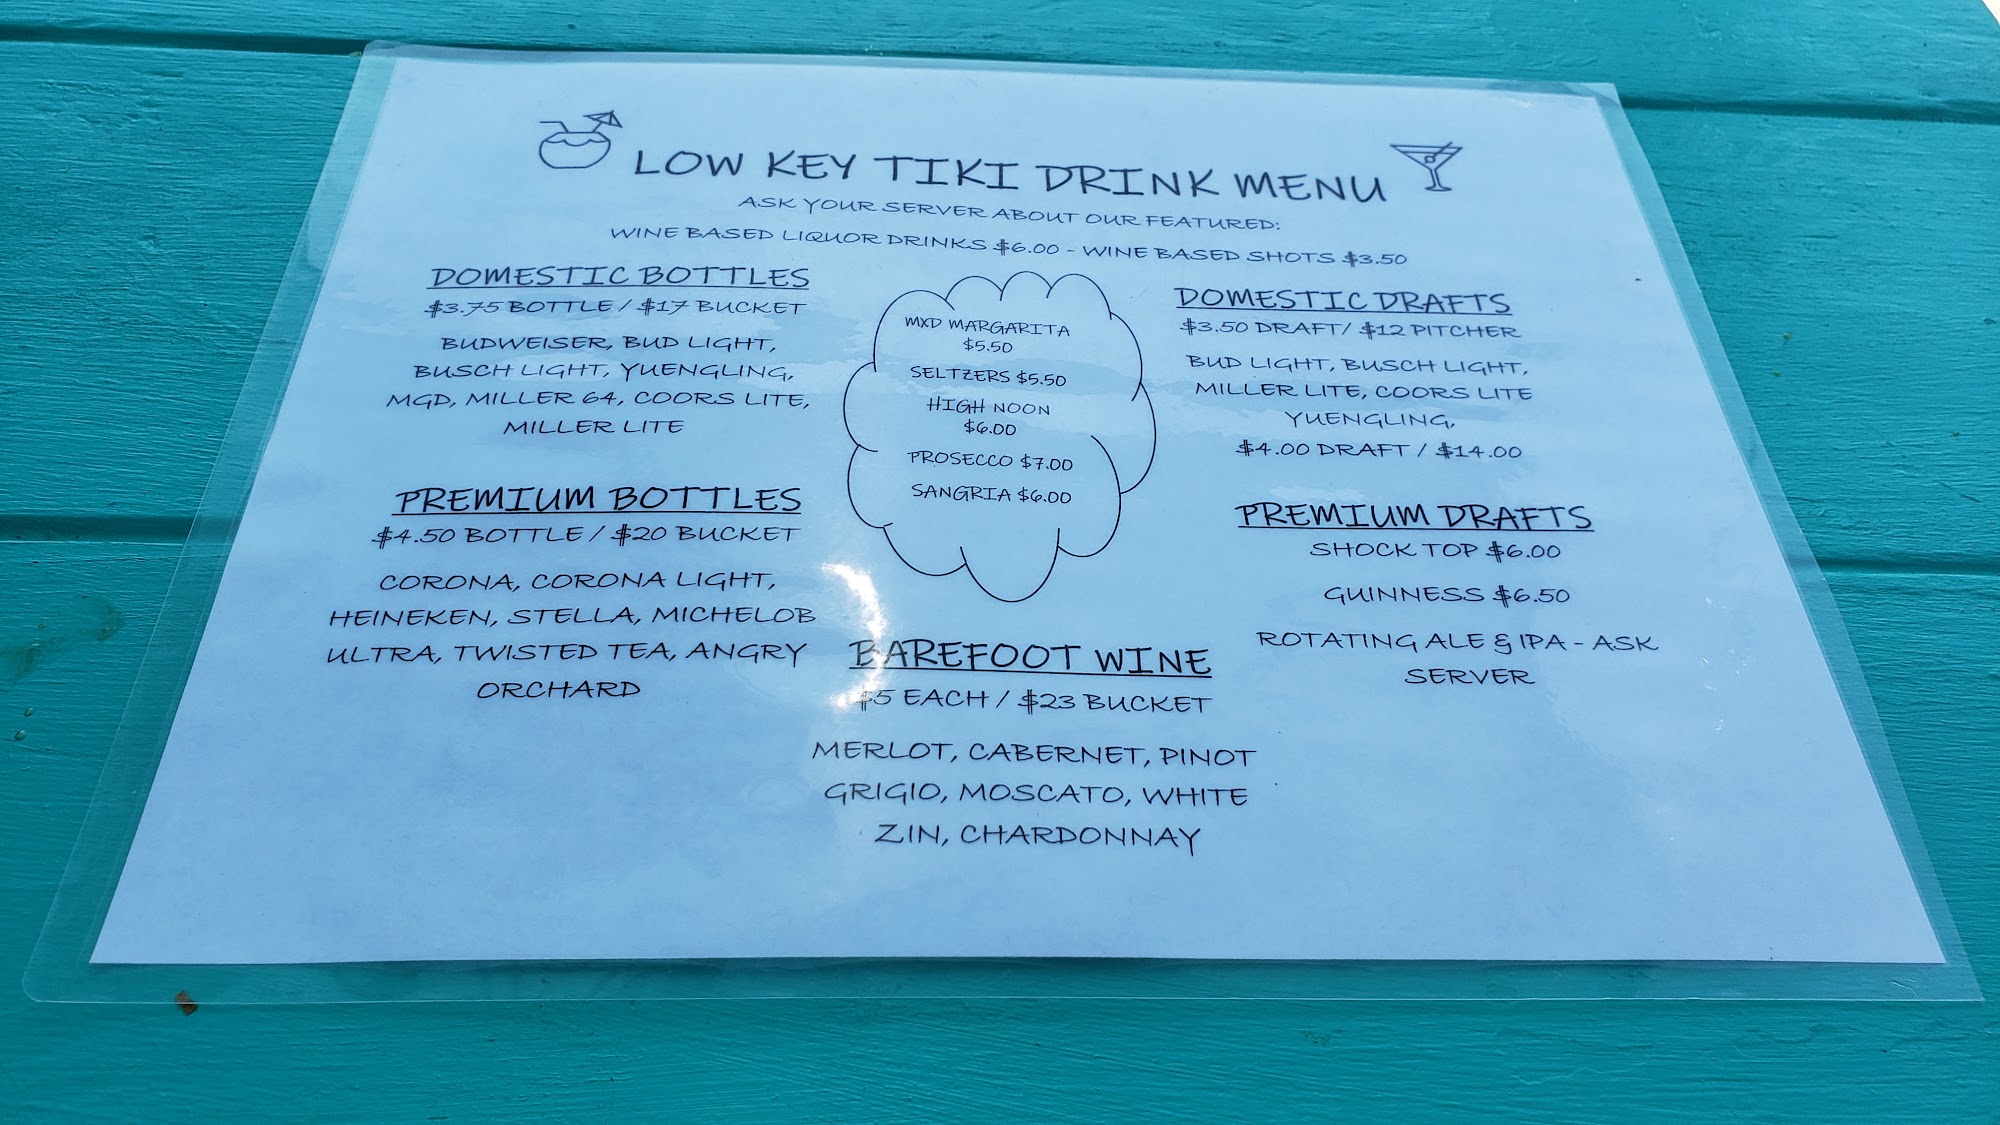 LOW KEY TIKI DRINK MENU
ASK YOUR SERVER ABOUT OUR FEATURED:
WINE BASED LIQUOR DRINKS $6.00 - WINE BASED SHOTS $3.50
DOMESTIC BOTTLES
$3.75 BOTTLE / $17 BUCKET
BUDWEISER, BUD LIGHT,
BUSCH LIGHT, YUENGLING,
MGD, MILLER 64, COORS LITE,
MILLER LITE
PREMIUM BOTTLES
$4.50 BOTTLE / $20 BUCKET
CORONA, CORONA LIGHT,
HEINEKEN, STELLA, MICHELOB
ULTRA, TWISTED TEA, ANGRY
ORCHARD
MXD MARGARITA
$5.50
SELTZERS $5.50
HIGH NOON
$6.00
PROSECCO $7.00
SANGRIA $6.00
BAREFOOT WINE
$5 EACH / $23 BUCKET
MERLOT, CABERNET, PINOT
GRIGIO, MOSCATO, WHITE
ZIN, CHARDONNAY
DOMESTIC DRAFTS
$3.50 DRAFT/ $12 PITCHER
BUD LIGHT, BUSCH LIGHT,
MILLER LITE, COORS LITE
YUENGLING,
$4.00 DRAFT / $14.00
PREMIUM DRAFTS
SHOCK TOP $6.00
GUINNESS $6.50
ROTATING ALE & IPA - ASK
SERVER